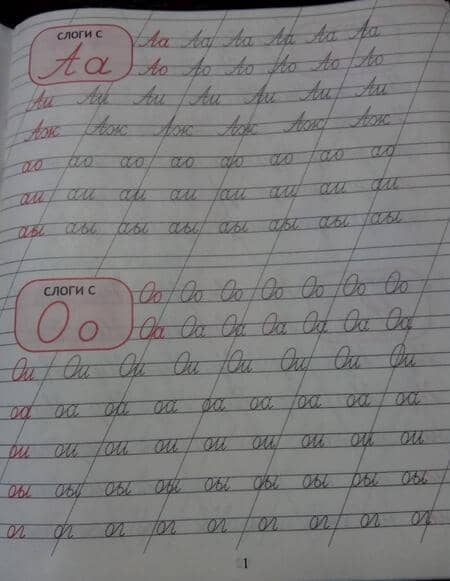 СЛОГИ С
А а
Аа Аа Аа Аа Аа Аа
Ао Ао Ао Ао Ао Ао
Аи Аи Аи Аи Аи Аи Аи
Аж Аж Аж Аж Аж Аж
ао ао ао ао ао ао ао ао
аи аи аи аи аи аи аи аи
аы аы аы аы аы аы аы аы
СЛОГИ С
О о
Оо Оо Оо Оо Оо Оо Оо
Оа Оа Оа Оа Оа Оа Оа
Ои Ои Ои Ои Ои Ои Ои Ои
оа оа оа оа оа оа оа оа оа
ои ои ои ои ои ои ои ои ои
оы оы оы оы оы оы оы оы оы
ог ог ог ог ог ог ог ог ог
1